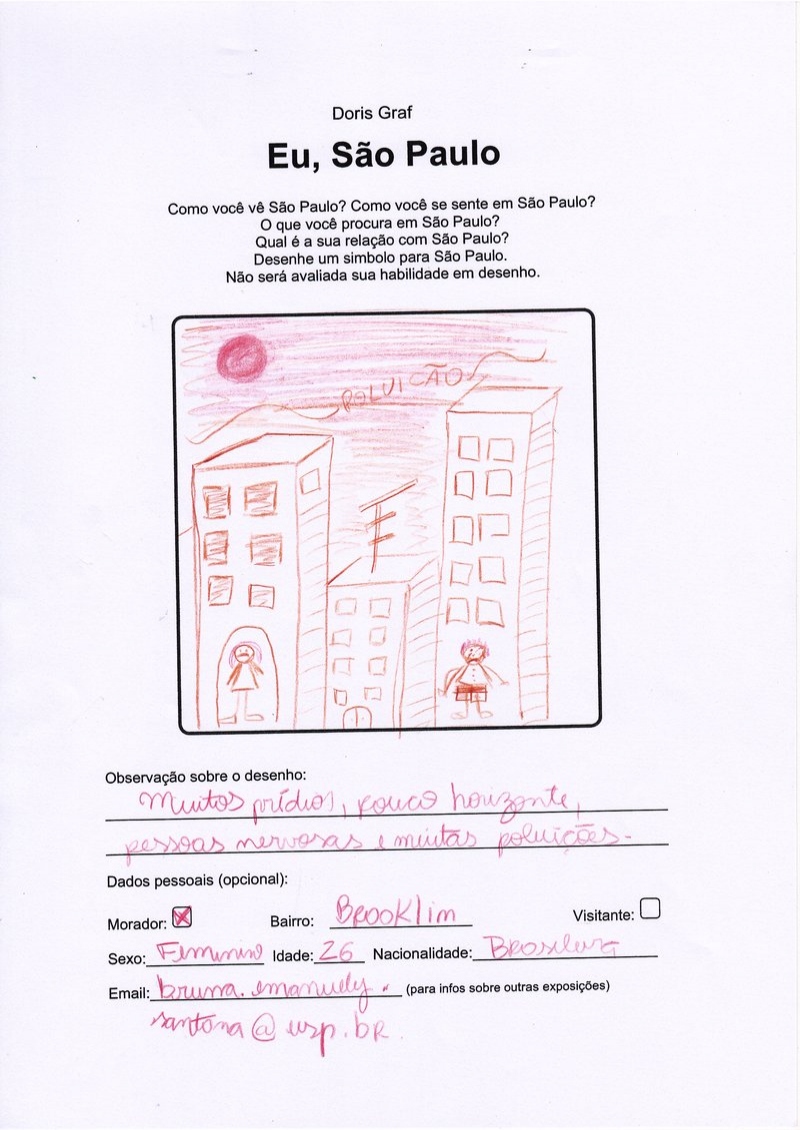 Doris Graf
Eu, São Paulo
Como você vê São Paulo? Como você se sente em São Paulo?
O que você procura em São Paulo?
Qual é a sua relação com São Paulo?
Desenhe um simbolo para São Paulo.
Não será avaliada sua habilidade em desenho.
POLUIÇÃO
Observação sobre o desenho:
Muitos prédios, pouco horizonte,
pessoas nervosas e muitas poluições.
Dados pessoais (opcional):
Morador: Bairro: Brooklim Visitante:
Sexo: Feminino Idade: 26 Nacionalidade: Brasileira
Email: bruna.emanuely. (para infos sobre outras exposições)
santana@usp.br